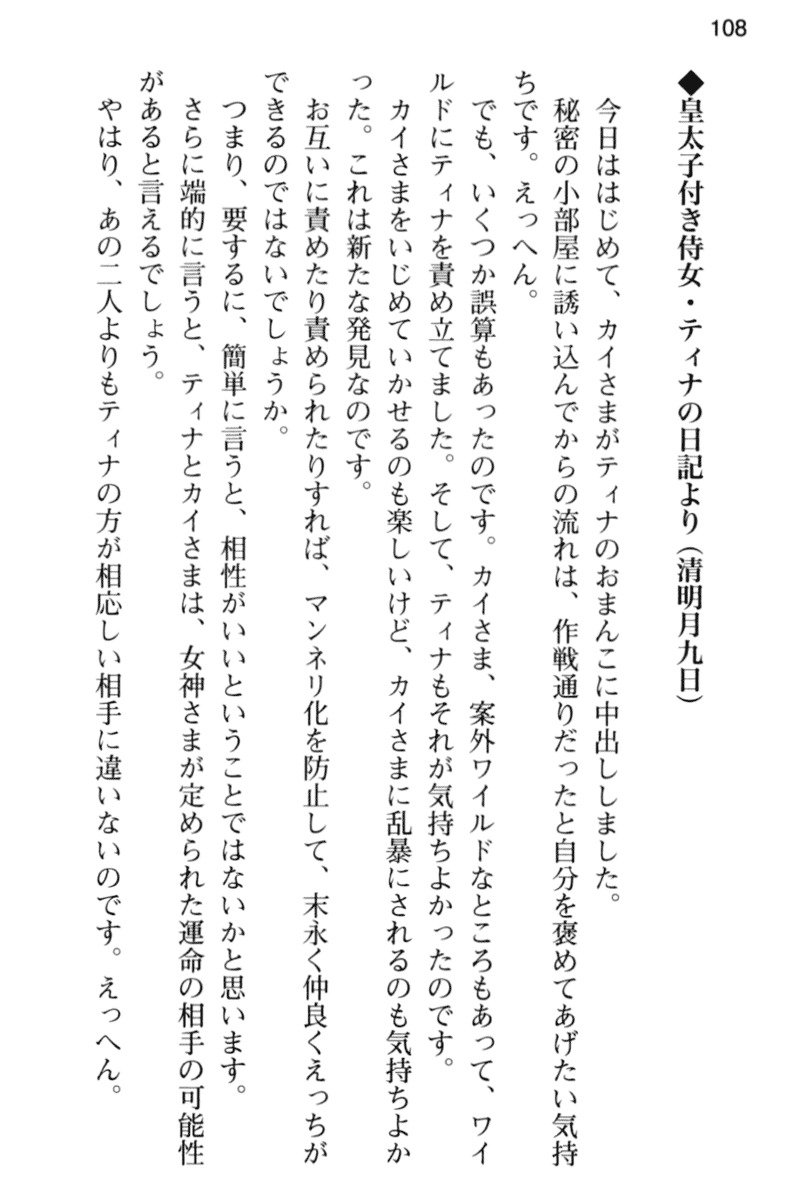 108
◆皇太子付き侍女・ティナの日記より(清明月九日)
今日ははじめて、カイさまがティナのおまんこに中出ししました。
秘密の小部屋に誘い込んでからの流れは、作戦通りだったと自分を褒めてあげたい気持
ちです。えっへん。
でも、いくつか誤算もあったのです。カイさま、案外ワイルドなところもあって、ワイ
ルドにティナを責め立てました。そして、ティナもそれが気持ちよかったのです。
カイさまをいじめていかせるのも楽しいけど、カイさまに乱暴にされるのも気持ちよか
った。これは新たな発見なのです。
お互いに責めたり責められたりすれば、マンネリ化を防止して、末永く仲良くえっちが
できるのではないでしょうか。
つまり、要するに、簡単に言うと、相性がいいということではないかと思います。
さらに端的に言うと、ティナとカイさまは、女神さまが定められた運命の相手の可能性
があると言えるでしょう。
やはり、あの二人よりもティナの方が相応しい相手に違いないのです。えっへん。